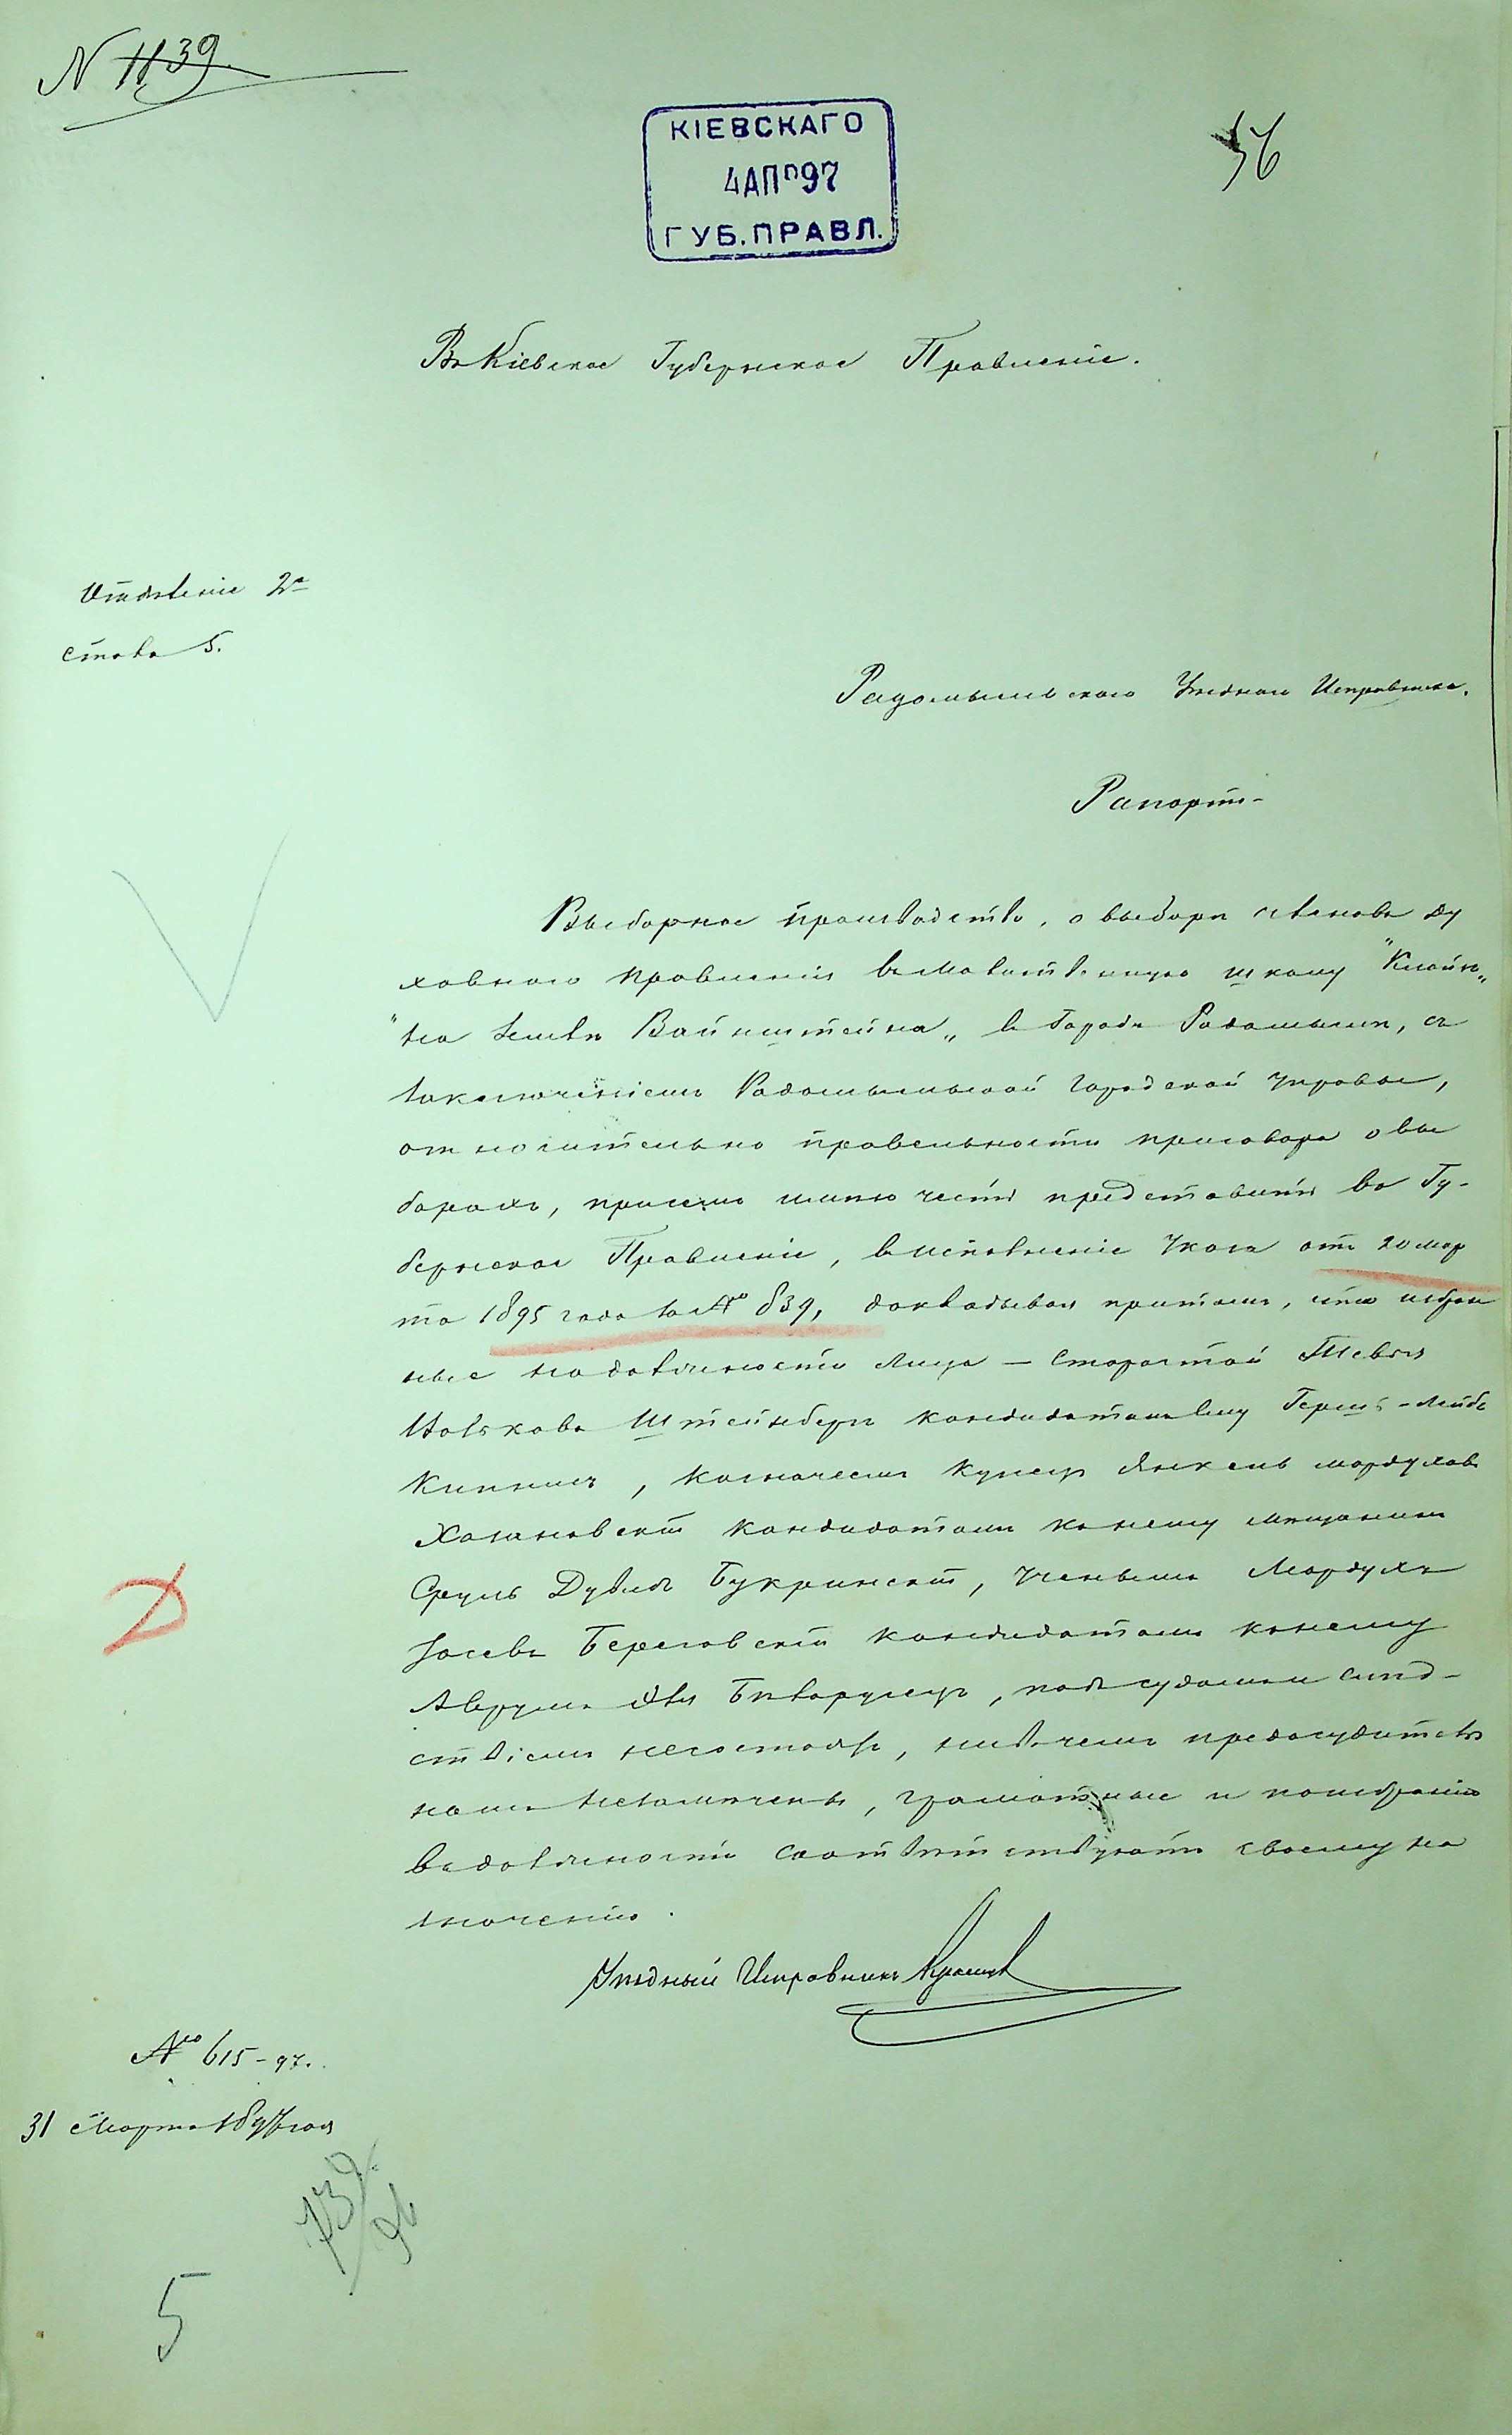 N 1139
КІЕВСКАГО
4 АПР 97
ГУБ. ПРАВЛ.
56
Въ Кіевское Губернское Правленіе.
Отдѣленіе 2е
Столъ 5.
Радомысльскаго Уѣзднаго Исправника.
Рапортъ
Выборное производство, о выборѣ членовъ ду
ховнаго правленія въ молитвенную школу "Клойзъ"
"на землѣ Вайнштейна" въ городѣ Радомыслѣ, съ
заключеніемъ Радомысльской Городской Управы,
относительно правельности приговора о вы
борахъ, при семъ имѣю честь представить въ Гу-
бернское Правленіе, въ исполненіе Указа отъ 20 мар
та 1895 года за № 839, докладывая притомъ, что избран
ные на должности лица — Старостой Тевья
Ицьковъ Штейнбергъ кандидатомъ ему Гершъ-Лейбъ
Кипнисъ, казначеемъ купецъ Янкель Мордуховъ
Хазановскій кандидатомъ к нему мещанинъ
Сруль Дувидъ Букринскій, Ученымъ Мордухъ
Іосевъ Береговскій кандидатомъ к нему
Аврумъ, подъ судомъ и слѣд-
ствіемъ несостоятъ, ни въ чемъ предосудитель
номъ незамѣчены, грамотные и по избранію
въ должности соотвѣтствуютъ своему на
значенію.
Уѣздный Исправникъ
№ 615-97.
31 Марта 1897 года
739/96
5
Д